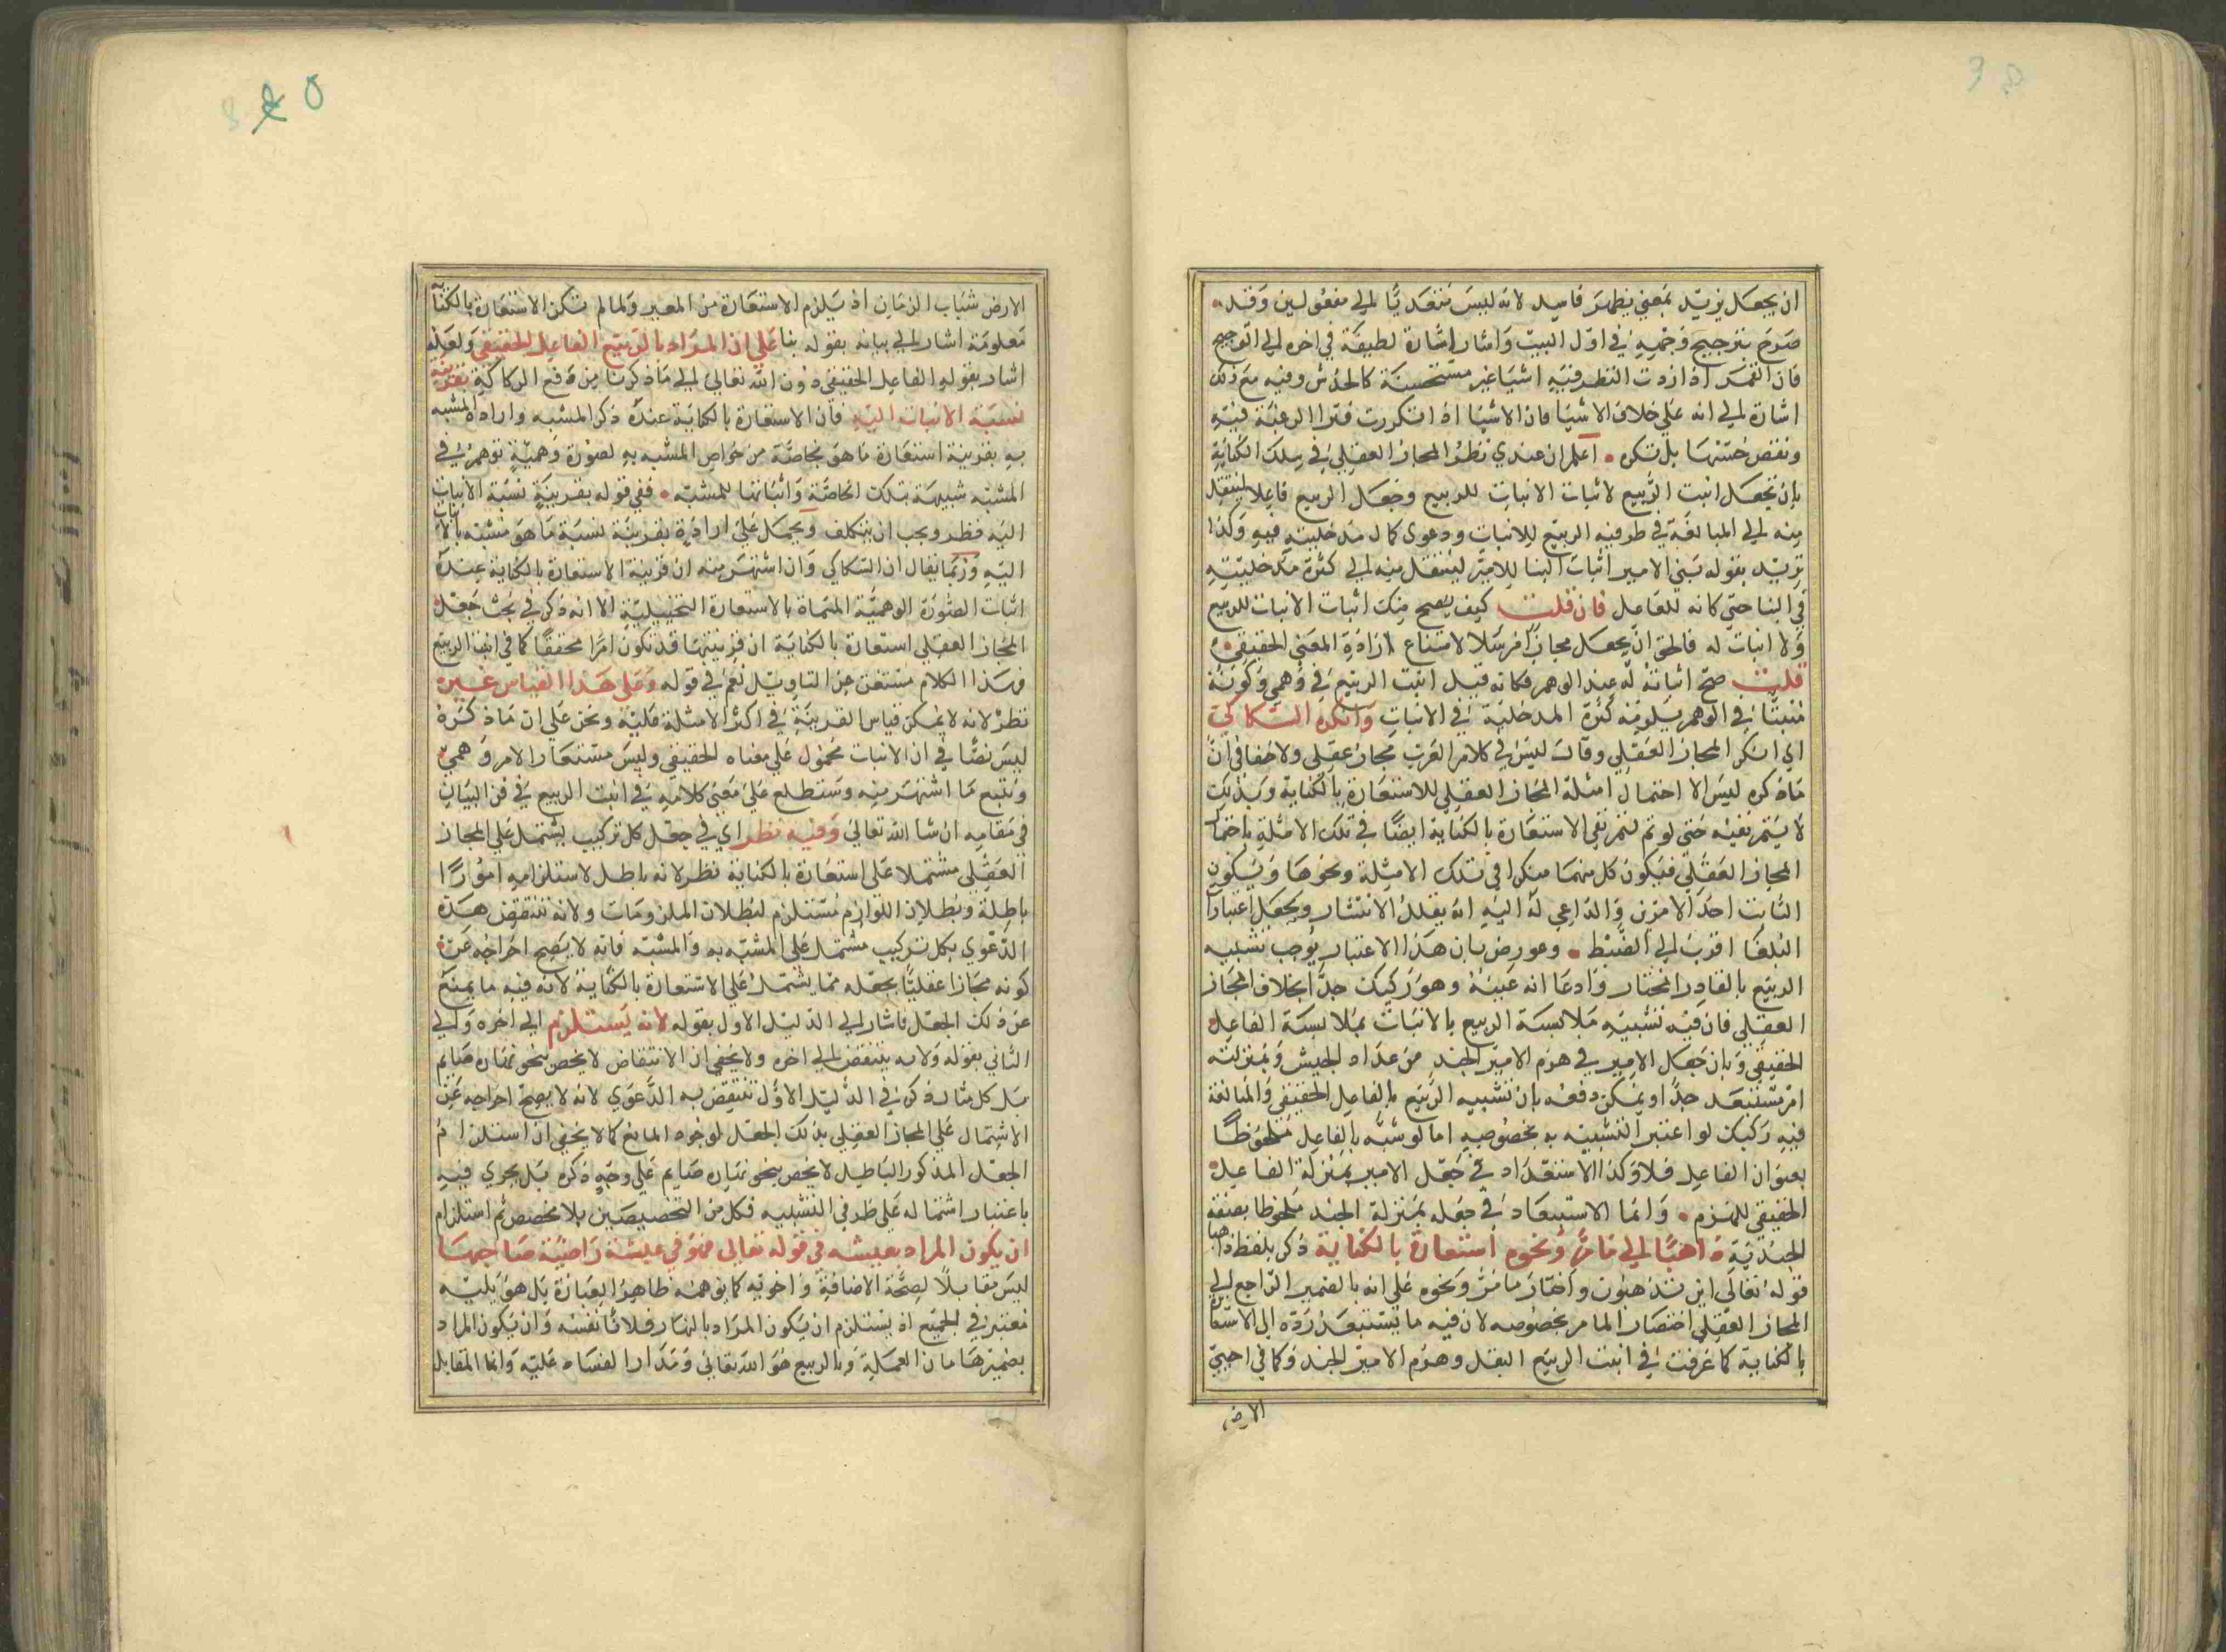 ان يجعل يزيد بمعنى يظهر فاسد لانه ليس متعديا الى مفعولين وقد
صرح بترجيح وجهه في اول البيت واشار اشارة لطيفة في اخره الى الترجيح
فان القمر اذا زدت النظر فيه اشيا غير مستحسنة كالخدش وفيه مع ذلك
اشارة الى انه على خلاف الاشيا فان الاشيا اذا تكررت فترا الرغبة فيه
ونقص حسنها بل تكره اعلم ان عندي نظر المجاز العقلي في سلك الكناية
بان يجعل انبت الربيع لاثبات الانبات للربيع وجعل الربيع فاعلا لينتقل
منه الى المبالغة في طرفيه الربيع للانبات ودعوى كمال مدخليته فيه وكذا
تريد بقوله بنى الامير اثبات البنا للامير لينتقل منه الى كثرة مدخليته
في البنا حتى كانه للعامل فان قلت كيف يصح منك اثبات الانبات للربيع
ولا انبات له فالحق ان يجعل مجازا مرسلا لامتناع ارادة المعنى الحقيقي
قلت صح اثباته له عند الوهم فكانه قيل انبت الربيع في وهمي وكونه
منبتا في الوهم يلزمه كثرة المدخلية في الانبات وانكره السكاكي
اي انكر المجاز العقلي وقال ليس في كلام العرب مجاز عقلي ولا خفا في ان
ما ذكره ليس الا احتمال امثلة المجاز العقلي للاستعارة بالكناية وبذلك
لا يتم نفيه حتى لو تم لتم نفي الاستعارة بالكناية ايضا في تلك الامثلة باحتمال
المجاز العقلي فيكون كل منهما منكرا في تلك الامثلة ونحوها ويكون
الثابت احد الامرين والداعي له اليه انه يقلل الانتشار ويجعل اعتبارات
البلغا اقرب الى الضبط وعورض بان هذا الاعتبار يوجب تشبيه
الربيع بالقادر المختار وادعا انه عينه وهو ركيك جدا بخلاف المجاز
العقلي فان فيه تشبيه ملابسة الربيع بالانبات بملابسة الفاعل
الحقيقي وبان جعل الامير في هزم الامير الجند من عداد الجيش وبمنزلته
امر مستبعد جدا ويمكن دفعه بان تشبيه الربيع بالفاعل الحقيقي والمبالغة
فيه ركيك لو اعتبر التشبيه به بخصوصه اما لو شبه بالفاعل ملحوظا
بعنوان الفاعل فلا وكذا الاستبعاد في جعل الامير بمنزلة الفاعل
الحقيقي للهزم وانما الاستبعاد في جعله بمنزلة الجند ملحوظا بصفة
الجندية ذاهبا الى ما مر ونحوه استعارة بالكناية ذكر بلفظ ذاهبا
قوله تعالى اين تذهبون واختار ما مر ونحوه على انه بالضمير الراجع الى
المجاز العقلي اختصارا لما مر بخصوصه لان فيه ما يستبعد رده الى الاستعارة
بالكناية كما عرفت في انبت الربيع البقل وهزم الامير الجند وكما في احيى
الارض
الارض شباب الزمان اذ يلزم الاستعارة من المعير ولما لم تكن الاستعارة بالكناية
معلومة اشار الى بيانه بقوله بنا على ان المراد بالربيع الفاعل الحقيقي ولعله
اشار بقوله الفاعل الحقيقي دون الله تعالى الى ما ذكرنا من دفع الركاكة بقرينة
نسبة الانبات اليه فان الاستعارة بالكناية عنده ذكر المشبه وارادة المشبه
به بقرينة استعارة ما هو بخاصة من خواص المشبه به لصورة وهمية توهم في
المشبه شبيهة بتلك الخاصة واثباتها للمشبه ففي قوله بقرينة نسبة الانبات
اليه نظر ويجب ان يتكلف ويحمل على ارادة بقرينة نسبة ما هو مشبه بالانبات
اليه وربما يقال ان السكاكي وان اشتهر منه ان قرينة الاستعارة بالكناية عنده
اثبات الصورة الوهمية المسماة بالاستعارة التخييلية الا انه ذكر في بحث جعل
المجاز العقلي استعارة بالكناية ان قرينتها قد تكون امرا محققا كما في انبت الربيع
فهذا الكلام مستغن عن التاويل نعم في قوله وعلى هذا القياس غيره
نظر لانه لا يمكن قياس القرينة في اكثر الامثلة عليه ونحن على ان ما ذكره
ليس نصا في ان الانبات محمول على معناه الحقيقي وليس مستعارا لامر وهمي
ونتبع ما اشتهر منه وستطلع على معنى كلامه في انبت الربيع في فن البيان
في مقامه ان شا الله تعالى وفيه نظر اي في جعل كل تركيب يشتمل على المجاز
العقلي مشتملا على استعارة بالكناية نظر لانه باطل لاستلزامه امورا
باطلة وبطلان اللوازم مستلزم لبطلان الملزومات ولانه تنتقض هذه
الدعوى بكل تركيب مشتمل على المشبه به والمشبه فانه لا يصح اخراجه عن
كونه مجازا عقليا بجعله مما يشتمل على الاستعارة بالكناية لانه فيه ما يمنع
عن ذلك الجعل فاشار الى الدليل الاول بقوله لانه يستلزم الى اخره والى
الثاني بقوله ولانه ينتقض الى اخره ولا يخفى ان الانتقاض لا يخص بنحو نهاره صايم
بل كل مثال ذكر في الدليل الاول تنتقض به الدعوى لانه لا يصح اخراجه عن
الاشتمال على المجاز العقلي بذلك الجعل لوجود المانع كما لا يخفى ان استلزام
الجعل المذكور الباطل لا يخص بنحو نهاره صايم على وجه ذكره بل يجري فيه
باعتبار اشتماله على طرفي التشبيه فكل من التخصيصين بلا مخصص ثم استلزام
ان يكون المراد بعيشة في قوله تعالى فهو في عيشة راضية صاحبها
ليس مقابلا لصحة الاضافة واخوته كما يوهمه ظاهر العبارة بل هو يليه
معتبر في الجميع اذ يستلزم ان يكون المراد بالنهار فلانا نفسه وان يكون المراد
بضمير هامان العملة وبالربيع هو الله تعالى ومدار الفساد عليه وانما المقابل